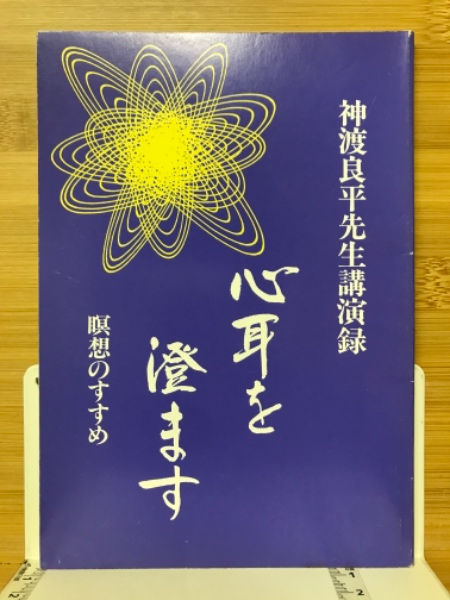 神渡良平先生講演録
心耳を
澄ます
瞑想のすすめ
1
2
1
2